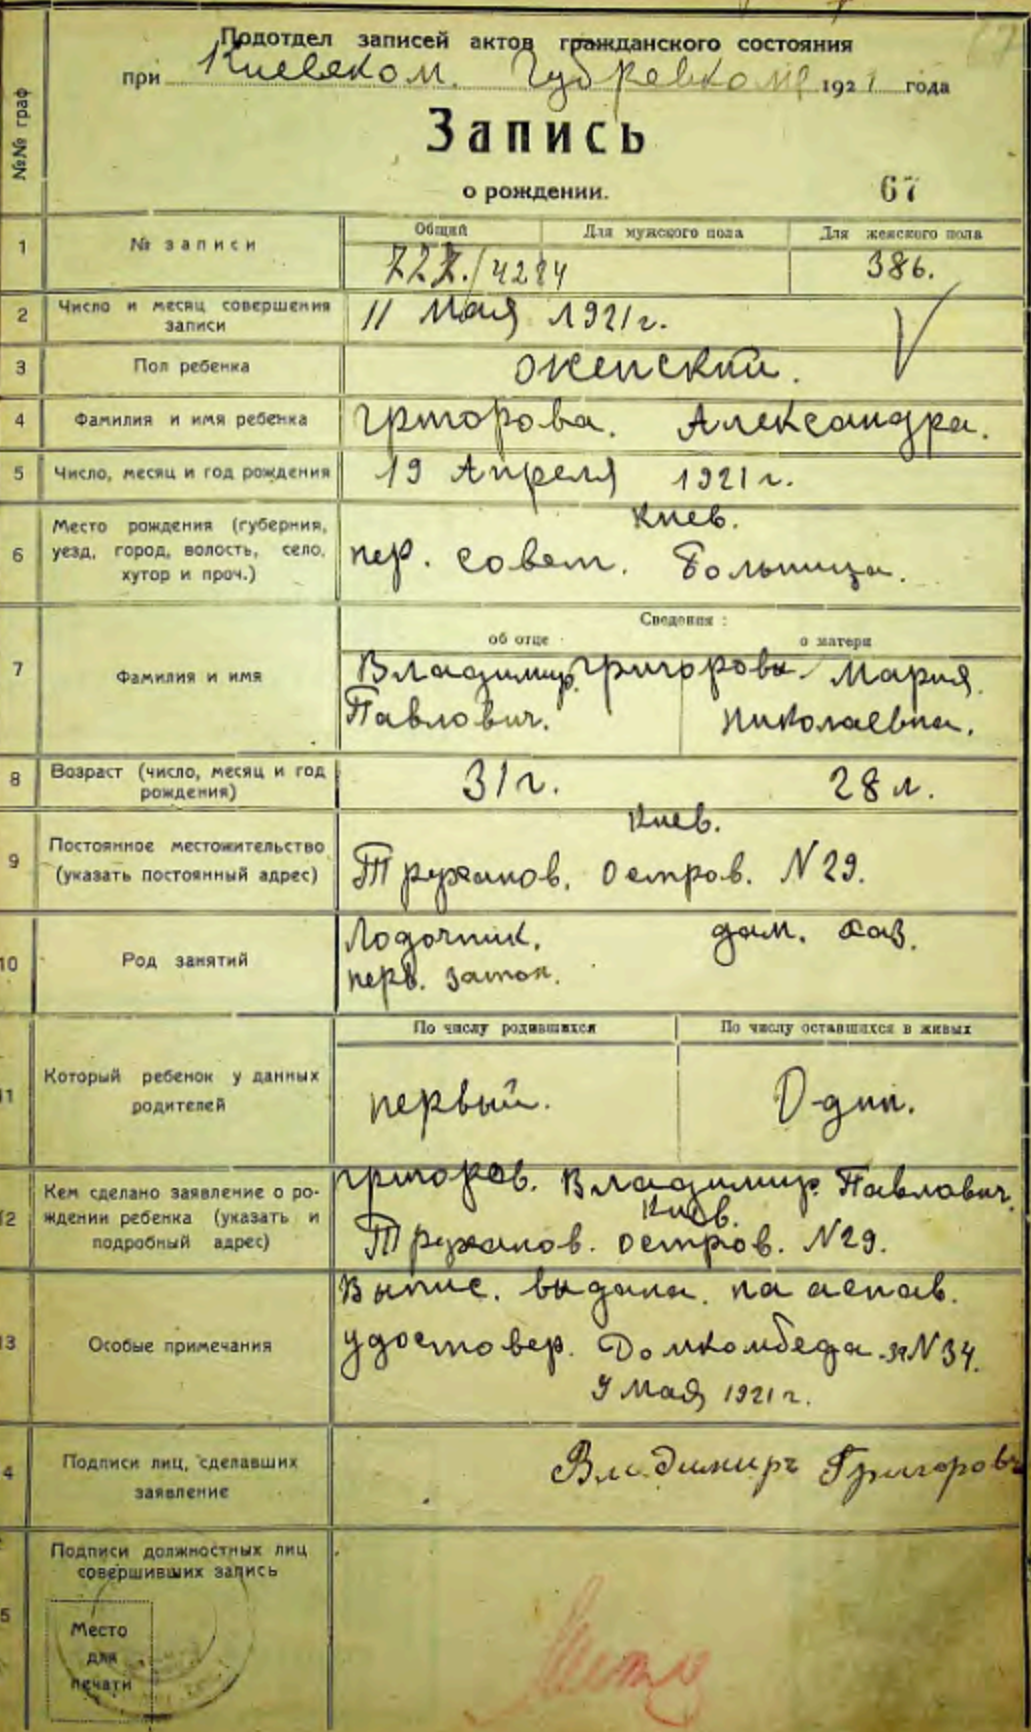 Подотдел записей актов гражданского состояния
при Киевском. Губревкоме 1921 года
Запись
о рождении.
67
№№ граф
1
№ записи
Общий
Для мужского пола
Для женского пола
722./4284
386.
2
Число и месяц совершения записи
11 Мая 1921 г.
3
Пол ребенка
женский.
4
Фамилия и имя ребенка
Григорова. Александра.
5
Число, месяц и год рождения
19 Апреля 1921 г.
6
Место рождения (губерния,
уезд, город, волость, село,
хутор и проч.)
Киев.
пер. совет. больница.
Сведения:
об отце
о матери
7
Фамилия и имя
Владимир. Григоровы Мария.
Павлович.
Николаевна.
8
Возраст (число, месяц и год
рождения)
31 г.
28 л.
9
Постоянное местожительство
(указать постоянный адрес)
Киев.
Труханов. Остров. N 29.
10
Род занятий
Лодочник.
дом. хоз.
перв. затон.
По числу родившихся
По числу оставшихся в живых
11
Который ребенок у данных
родителей
первый.
Один.
12
Кем сделано заявление о ро-
ждении ребенка (указать и
подробный адрес)
Григоров. Владимир. Павлович.
Киев.
Труханов. остров. N 29.
13
Особые примечания
Выпис. выдана. на основ.
удостовер. Домкомбеда N 34.
9 Мая 1921 г.
4
Подписи лиц, сделавших
заявление
Владимиръ Григоровъ
5
Подписи должностных лиц
совершивших запись
Место
для
печати